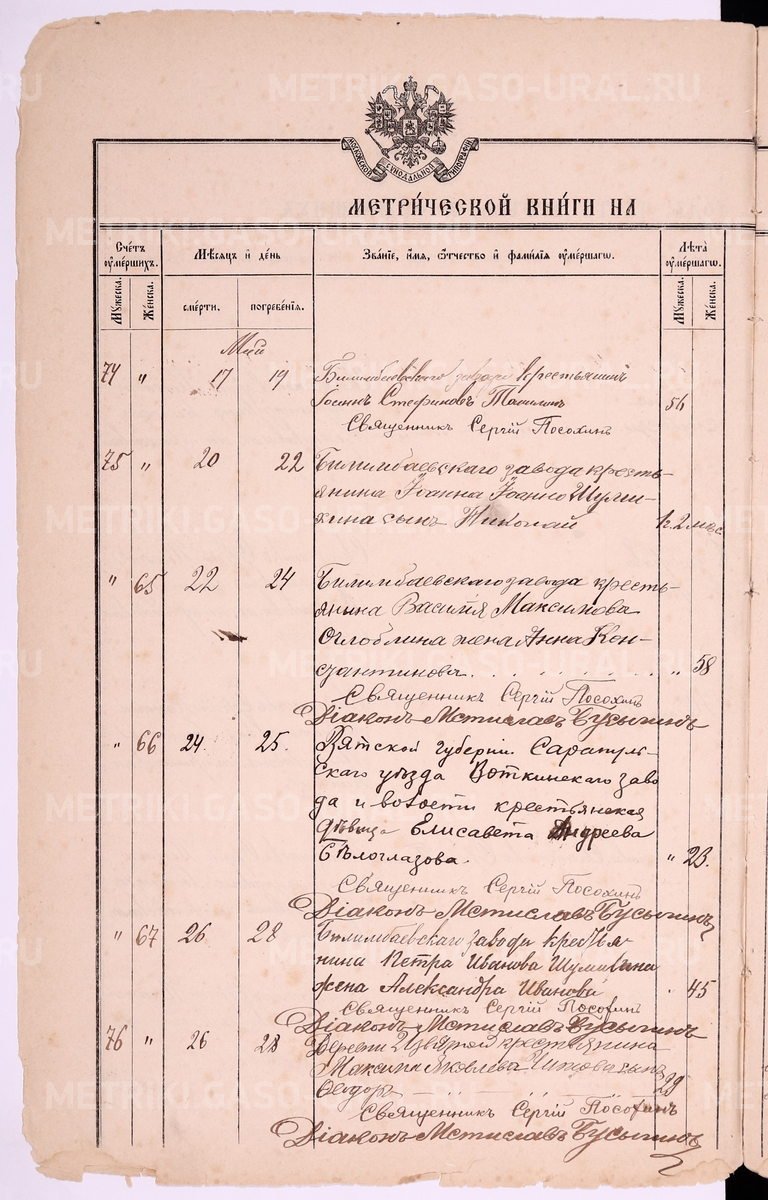 METRIKI.GASO-URAL.RU
МОСКОВСКОЙ СѴНОДАЛЬНОЙ ТИПОГРАФІИ
МЕТРИ́ЧЕСКОЙ КНИ́ГИ НА
Счетъ ᲂумершихъ.
Мѣсяцъ и день
Званіе, имя, ѻтчество и фамилія ᲂумершагѡ.
Лѣта ᲂумершагѡ.
Мужеска.
Женска.
смерти.
погребенія.
Мужеска.
Женска.
Май
74 " 17 19 Билимбаевскаго завода крестьянин
Іоанн Стефановъ 56
Священникъ Сергій Посохинъ
75 " 20 22 Билимбаевскаго завода кресть-
янина Іоанна Іоанно Шуми-
хина сынъ Николай 2 мѣс.
" 65 22 24 Билимбаевскаго завода кресть-
янина Василія Максимова
Оглоблина жена Анна Кон-
стантинова " 58
Священникъ Сергій Посохинъ
Діаконъ Мстиславъ Бусыгинъ
" 66 24. 25. Вятской губерніи Сарапуль-
скаго уѣзда Воткинскаго заво
да и волости крестьянская
дѣвица Елисавета Андреева
Бѣлоглазова. " 23.
Священникъ Сергій Посохинъ
Діаконъ Мстиславъ Бусыгинъ
" 67 26 28 Билимбаевскаго завода кресtья-
нина Петра Иванова
жена Александра Иванова " 45
Священникъ Сергій Посохинъ
Діаконъ Мстиславъ Бусыгинъ
76 " 26 28 Деревни крестьянина
Максима Яковлева сынъ
Ѳеодоръ 29
Священникъ Сергій Посохинъ
Діаконъ Мстиславъ Бусыгинъ